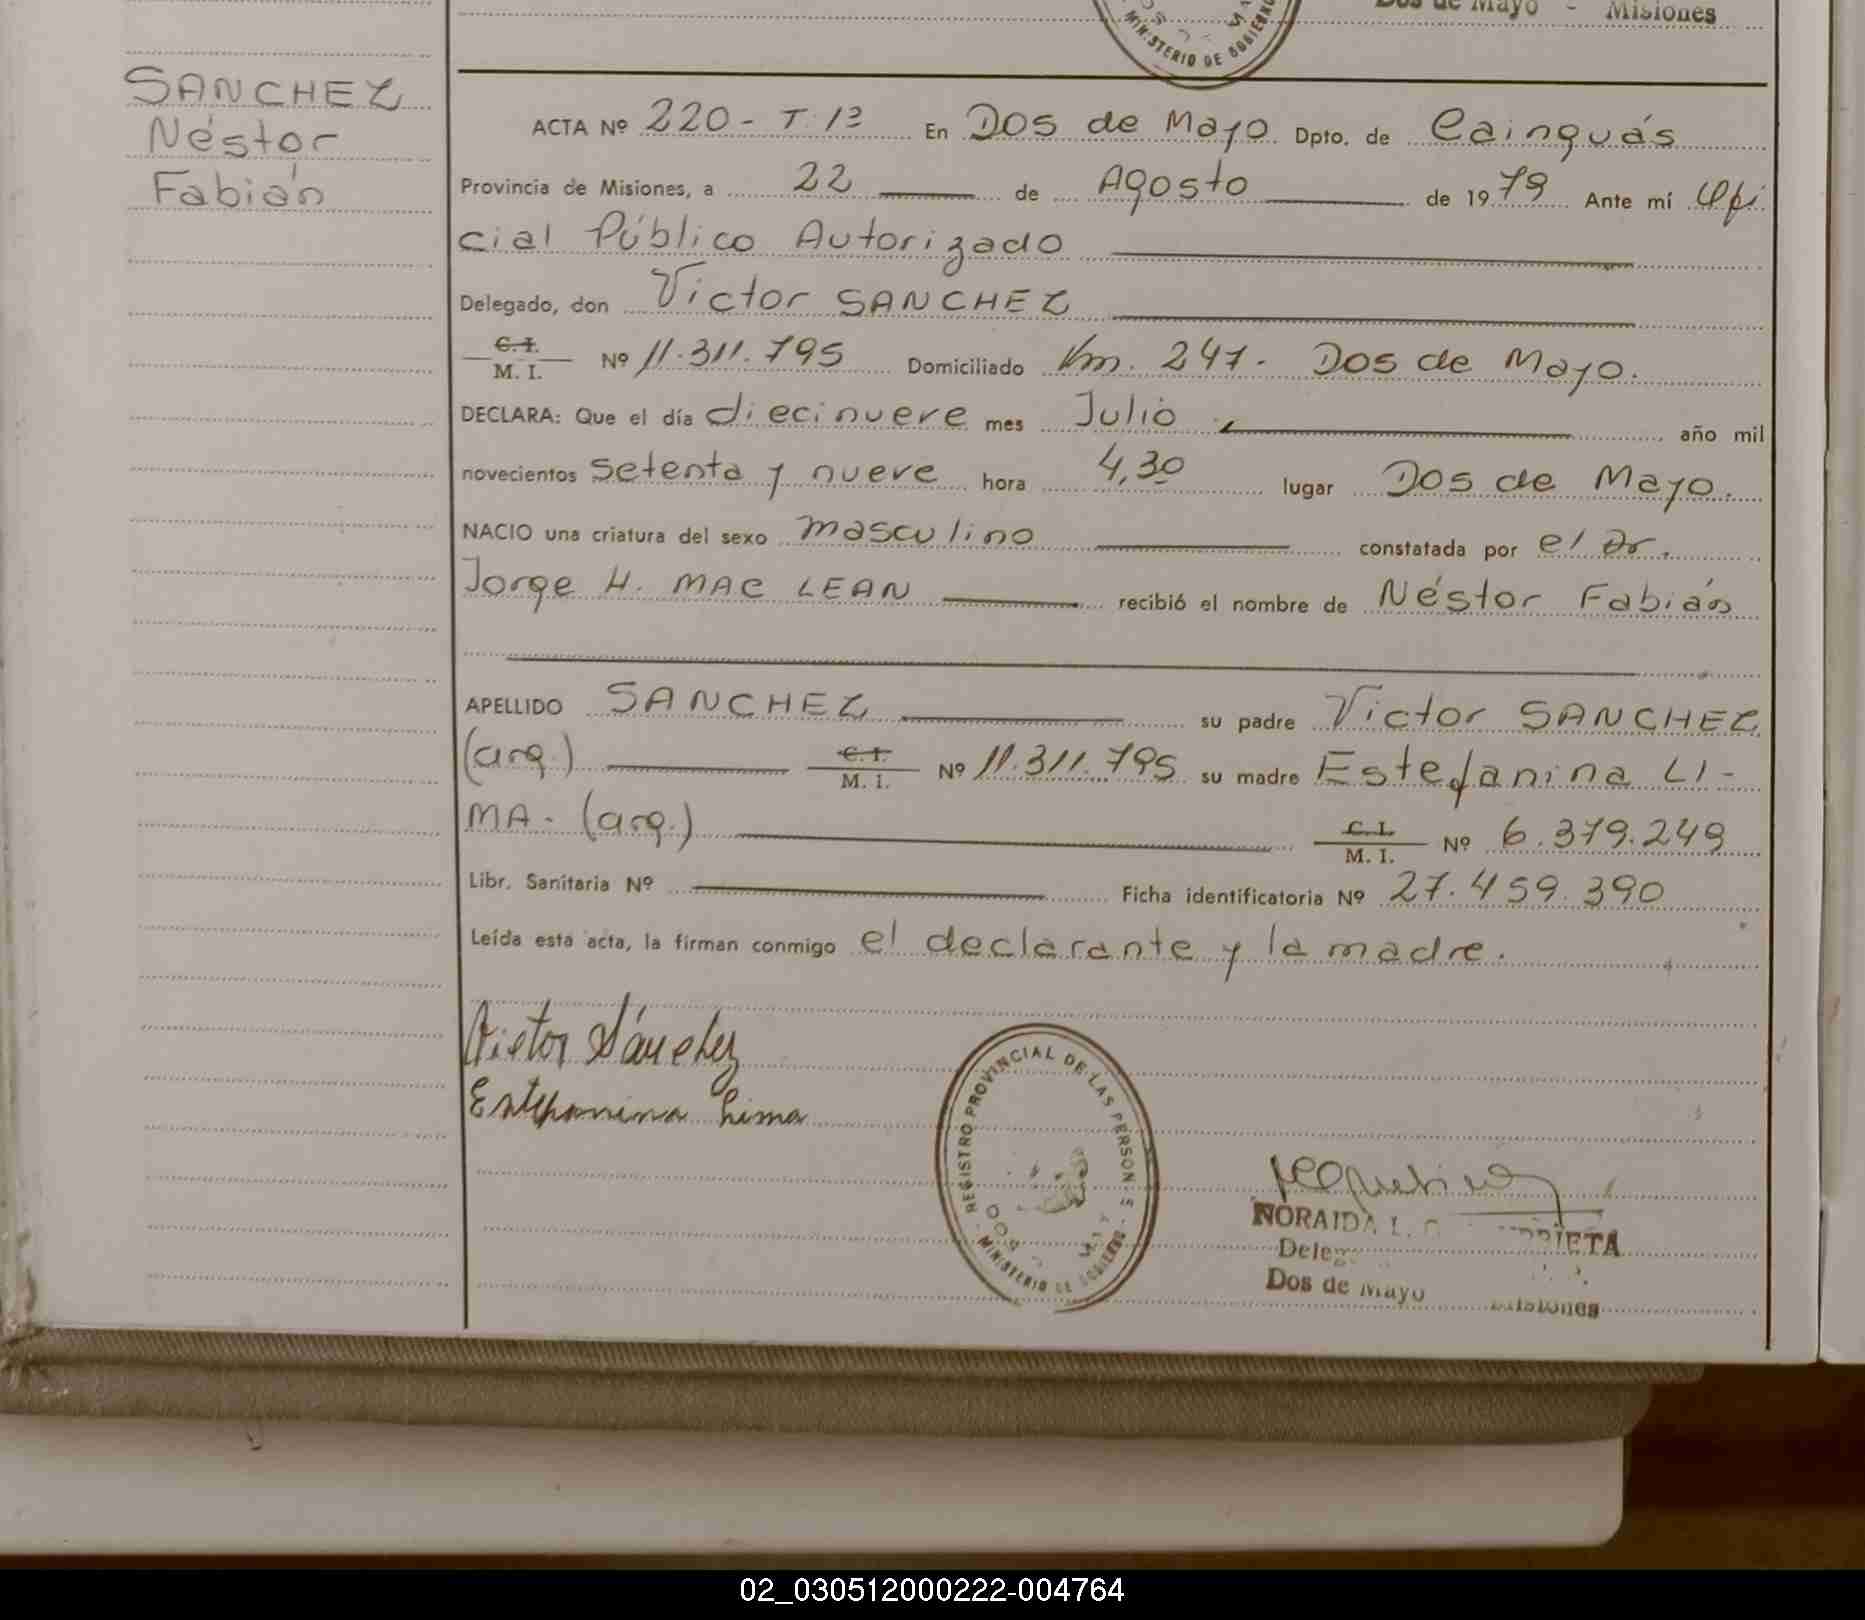 Dos de Mayo - Misiones
MINISTERIO DE GOBIERNO
SANCHEZ
Néstor
Fabián
ACTA Nº 220 - T. 1º En Dos de Mayo Dpto. de Cainguás
Provincia de Misiones, a 22 de Agosto de 1979 Ante mí Ofi
cial Público Autorizado
Delegado, don Victor SANCHEZ
C. I.
M. I. Nº 11.311.795 Domiciliado Km. 247. Dos de Mayo.
DECLARA: Que el día diecinueve mes Julio año mil
novecientos setenta y nueve hora 4,30 lugar Dos de Mayo.
NACIO una criatura del sexo masculino constatada por el Dr.
Jorge H. MAC LEAN recibió el nombre de Néstor Fabián
APELLIDO SANCHEZ su padre Victor SANCHEZ
(arg.) C. I.
M. I. Nº 11.311.795 su madre Estefanina LI-
MA. (arg.) C. I.
M. I. Nº 6.379.249
Libr. Sanitaria Nº Ficha identificatoria Nº 27.459.390
Leída esta acta, la firman conmigo el declarante y la madre.
Victor Sánchez
Estefanina Lima
REGISTRO PROVINCIAL DE LAS PERSON S
MINISTERIO DE GOBIERNO
NORAIDA L.
Dos de Mayo Misiones
02_030512000222-004764